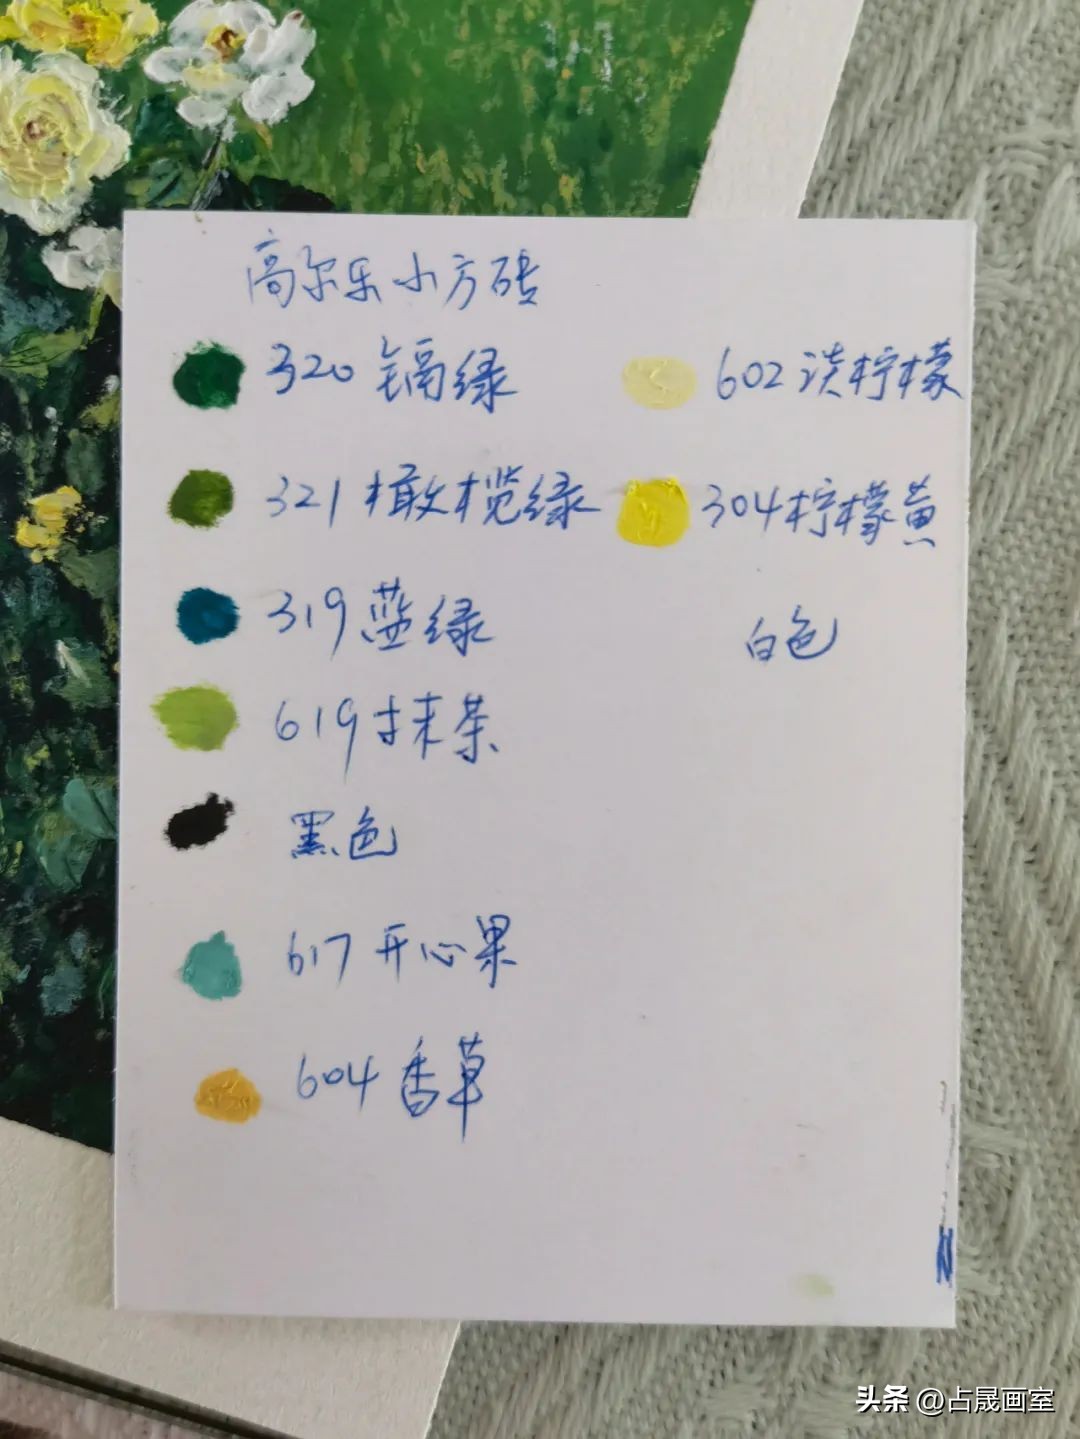 高尔乐小方砖
320 镉绿
321 橄榄绿
319 蓝绿
619 抹茶
黑色
617 开心果
604 香草
602 淡柠檬
304 柠檬黄
白色
头条 @占晟画室